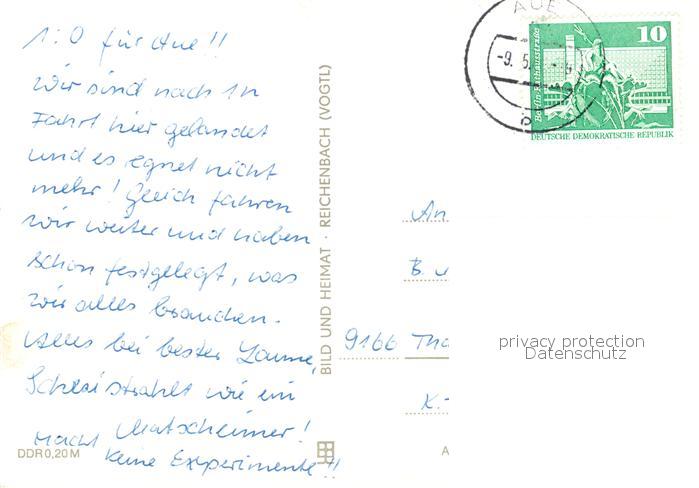 1:0 für Aue!!
Wir sind nach 1h
Fahrt hier gelandet
und es regnet nicht
mehr! Gleich fahren
wir weiter und haben
schon festgelegt, was
wir alles brauchen.
Alles bei bester Laune,
strahlt wie ein
Matscheimer!
Macht keine Experimente!!
DDR 0,20 M
BILD UND HEIMAT · REICHENBACH (VOGTL)
AUE
-9. 5.
b
10
Berlin, Rathausstraße
DEUTSCHE DEMOKRATISCHE REPUBLIK
An
B. u
9166 Tha
K.-
A
privacy protection
Datenschutz